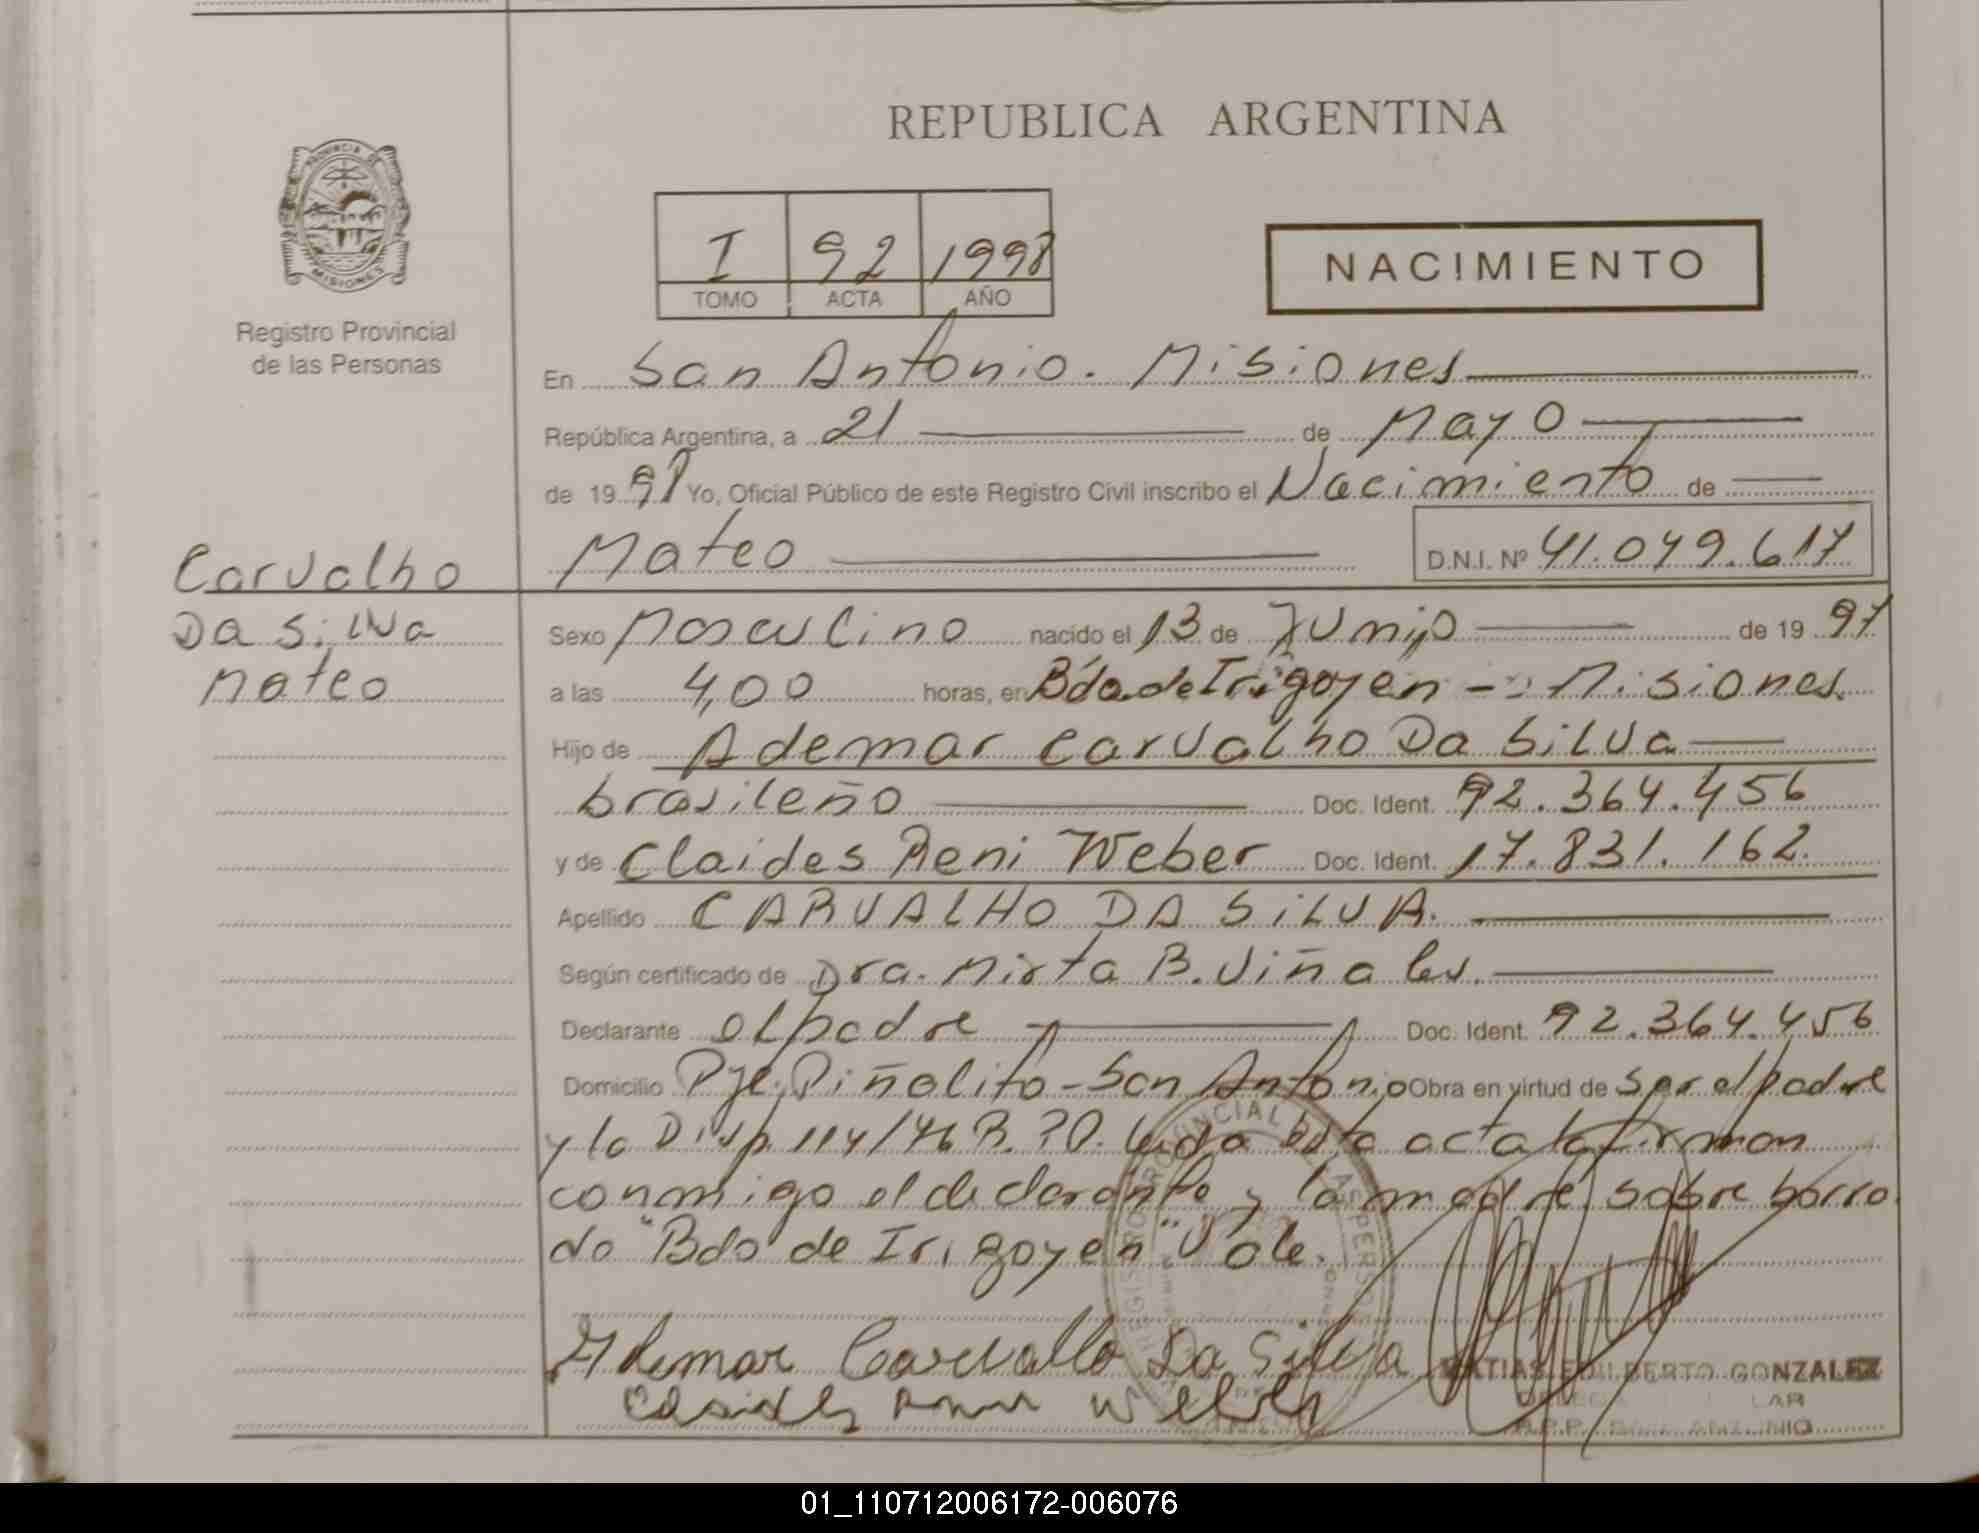 REPUBLICA ARGENTINA
PROVINCIA DE MISIONES
Registro Provincial
de las Personas
I 92 1998
TOMO ACTA AÑO
NACIMIENTO
En San Antonio. Misiones
República Argentina, a 21 de Mayo
de 19 98 Yo, Oficial Público de este Registro Civil inscribo el Nacimiento de
Mateo D.N.I. Nº 41.049.617
Carvalho
Da Silva
Mateo
Sexo Masculino nacido el 13 de Junio de 19 97
a las 4,00 horas, en Bdo. de Irigoyen - Misiones.
Hijo de Ademar Carvalho Da Silva
brasileño Doc. Ident. 92.364.456
y de Claides Reni Weber Doc. Ident. 17.831.162.
Apellido CARVALHO DA SILVA.
Según certificado de Dra. Mirta B. Viñales.
Declarante el padre Doc. Ident. 92.364.456
Domicilio Pje. Piñalito - San Antonio Obra en virtud de ser el padre
y la Disp. 114/96 R.P.P. Leida esta acta la firman
conmigo el declarante y la madre, sobre borra
do "Bdo de Irigoyen" Vale.
Ademar Carvallo Da Silva
Weber
MATIAS EDILBERTO GONZALEZ
R.P.P. SAN ANTONIO
01_110712006172-006076